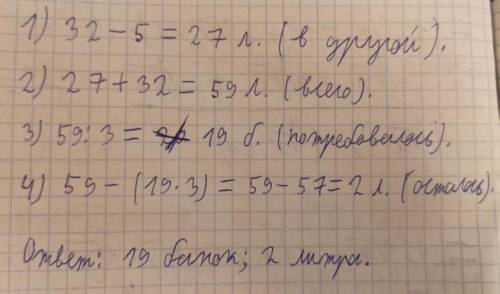 1) 32 - 5 = 27 л. (в другой).
2) 27 + 32 = 59 л. (всего).
3) 59 : 3 = 19 б. (потребовалось).
4) 59 - (19 · 3) = 59 - 57 = 2 л. (осталось).
Ответ: 19 банок; 2 литра.